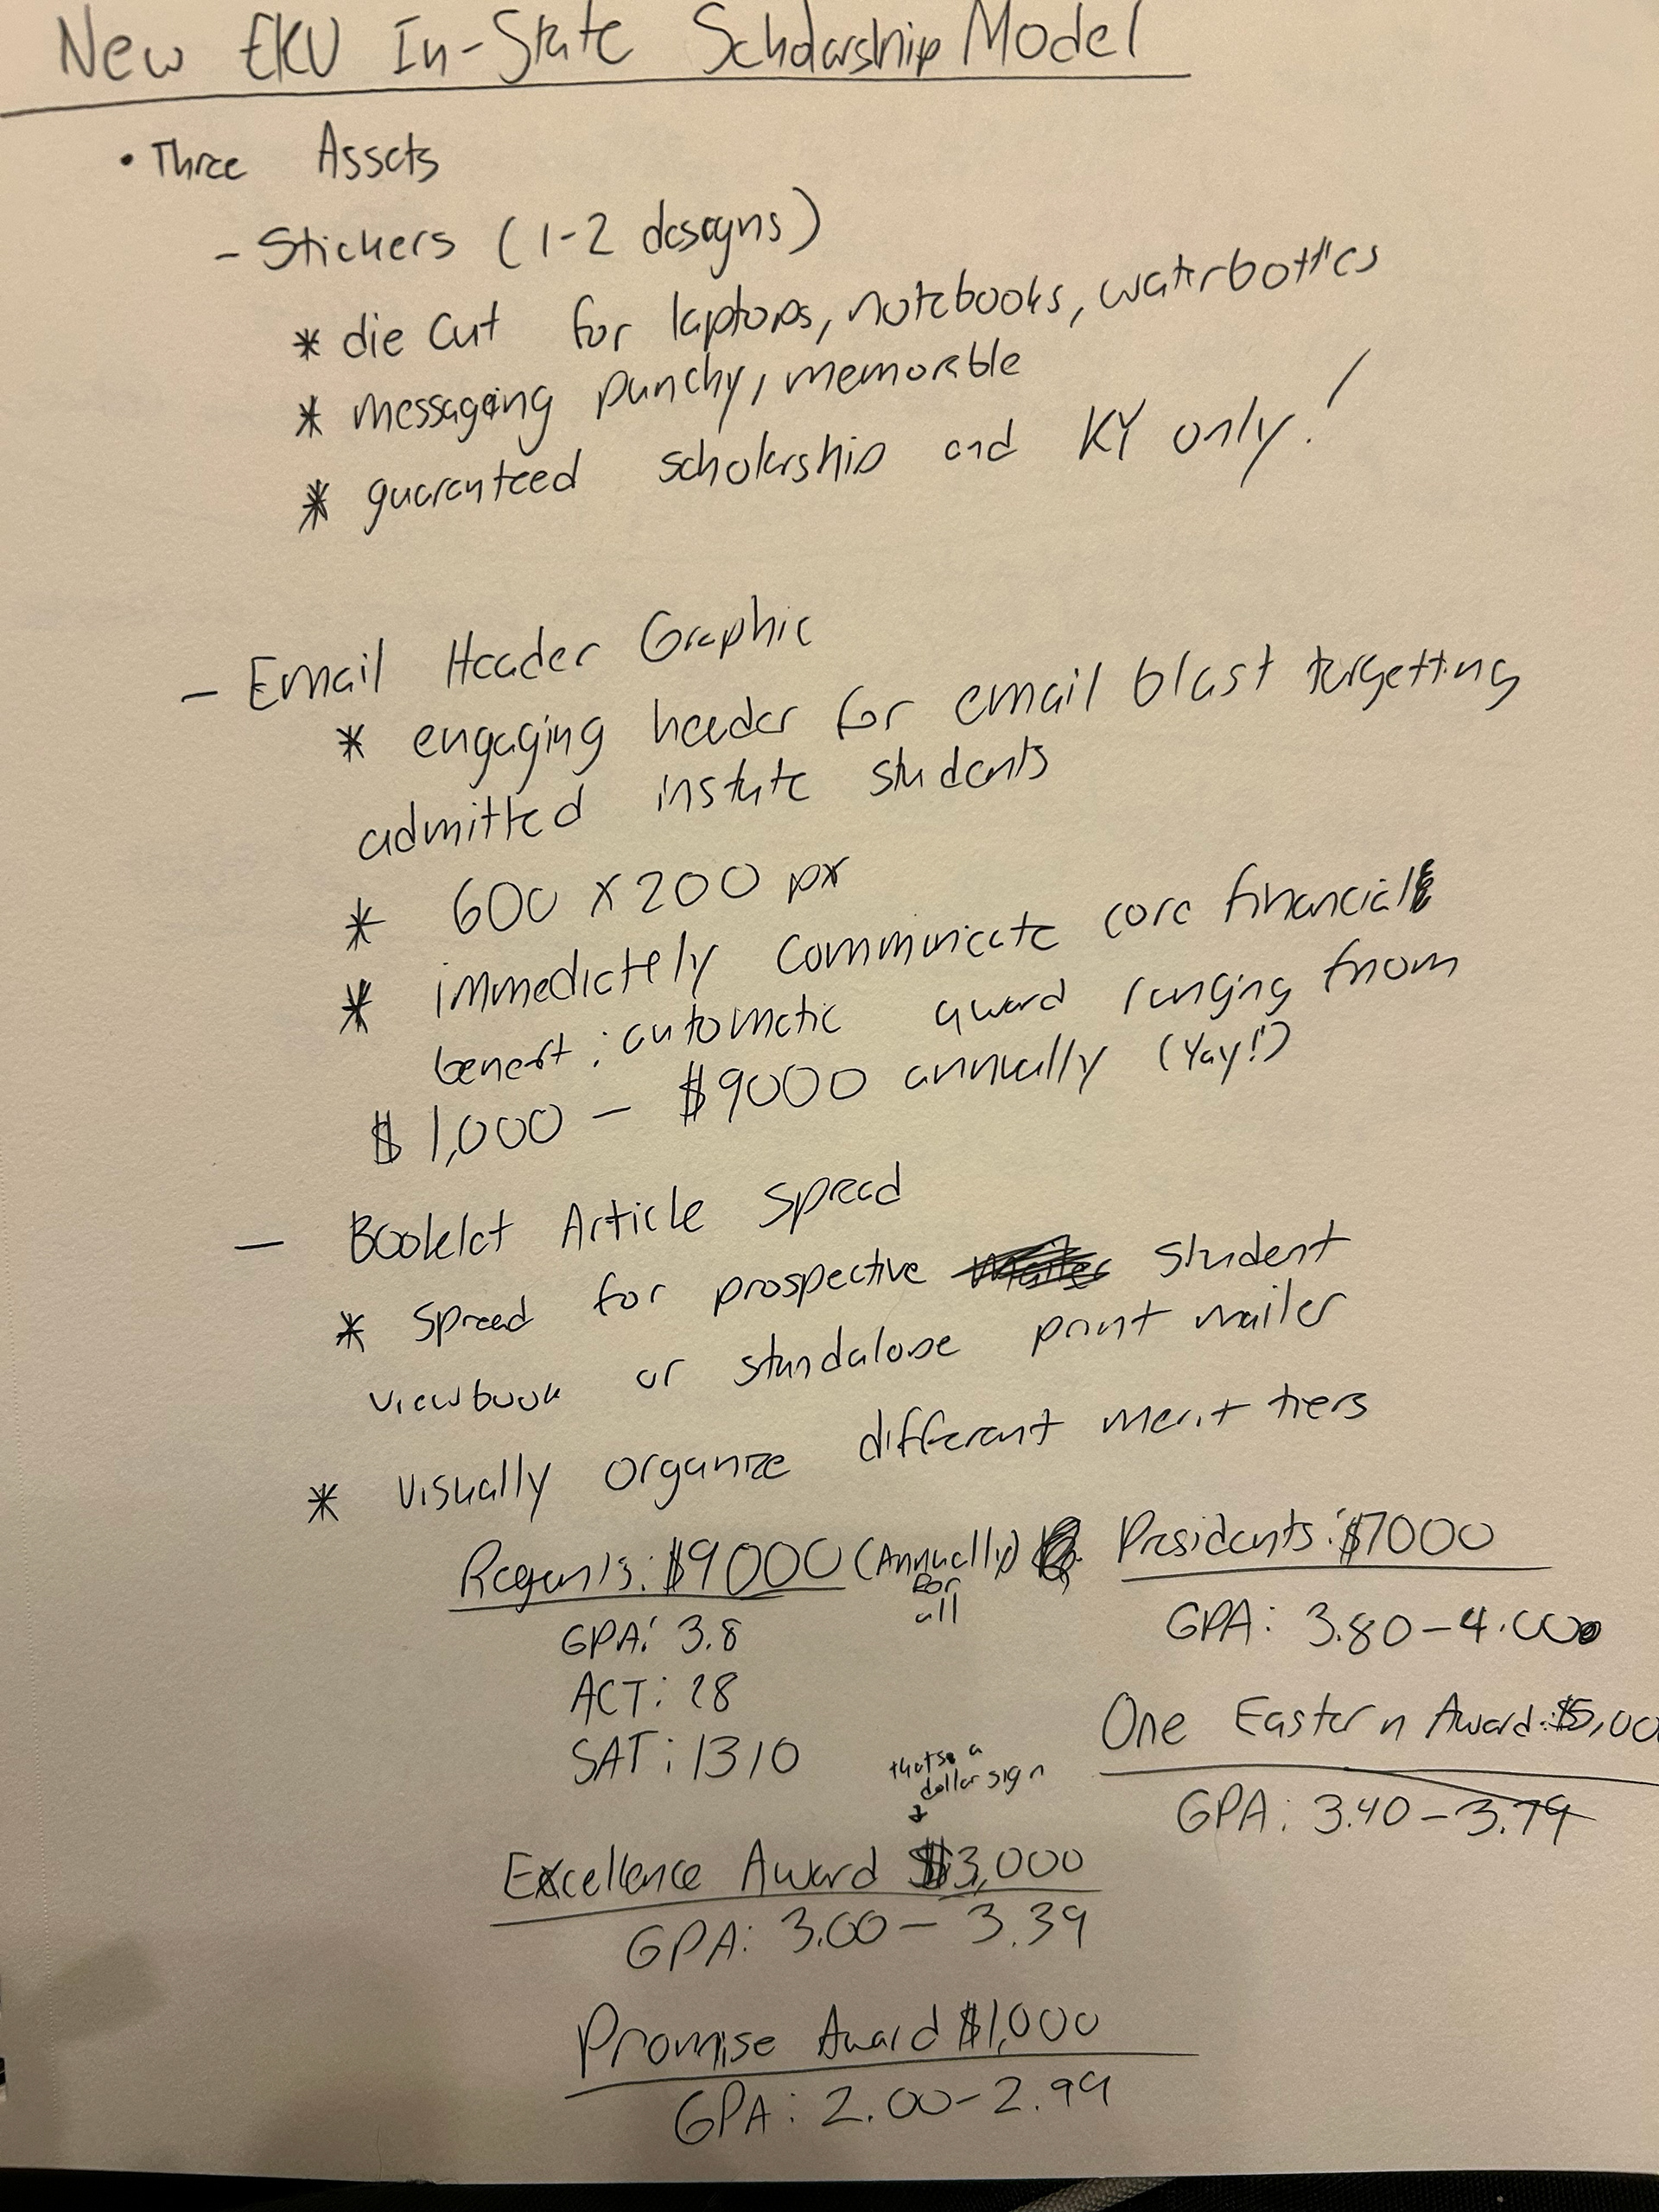 New EKU In-State Scholarship Model
• Three Assets
- Stickers (1-2 designs)
* die cut for laptops, notebooks, waterbottles
* messaging punchy, memorable
* guaranteed scholarship and KY only!
- Email Header Graphic
* engaging header for email blast targetting
admitted instate students
* 600 x 200 px
* immediately communicate core financial
benefit: automatic award ranging from
$1,000 - $9000 annually (Yay!)
- Booklet Article Spread
* Spread for prospective student
viewbook or standalone print mailer
* visually organize different merit tiers
Regents: $9000 (Annually) Presidents: $7000
for
all
GPA: 3.8
GPA: 3.80-4.00
ACT: 28
SAT: 1310
One Eastern Award: $5,00
GPA: 3.40-3.79
thats a
dollar sign
Excellence Award $3,000
GPA: 3.00-3.39
Promise Award $1,000
GPA: 2.00-2.99